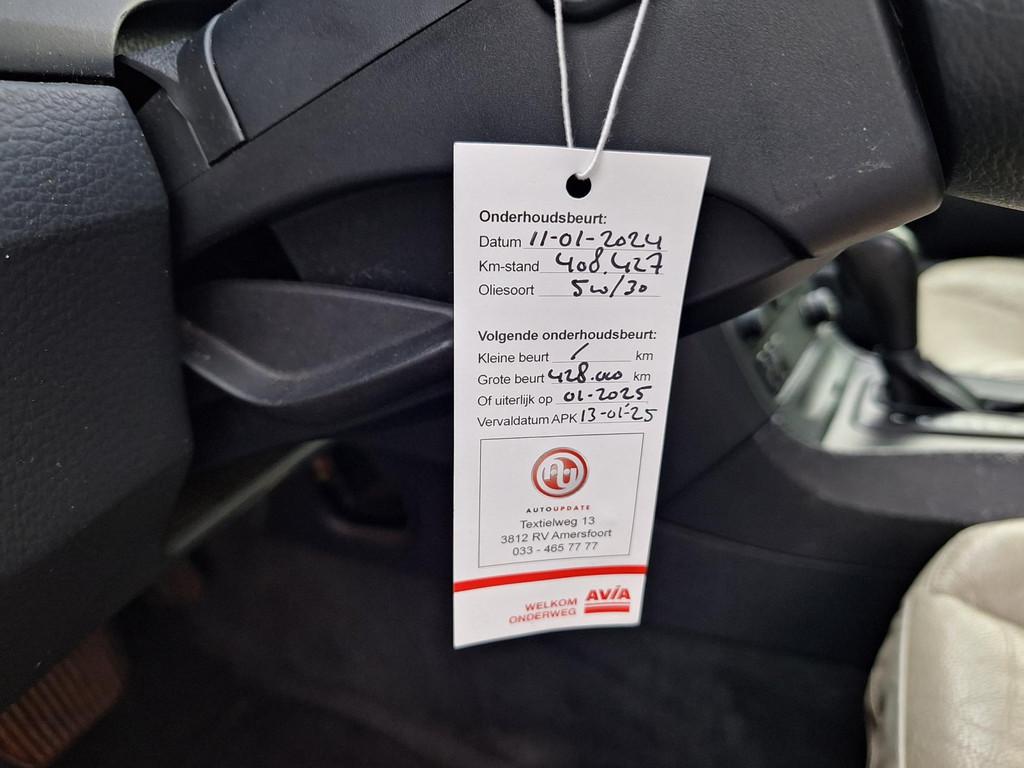 Onderhoudsbeurt:
Datum 11-01-2024
Km-stand 408.427
Oliesoort 5w/30
Volgende onderhoudsbeurt:
Kleine beurt / km
Grote beurt 428.000 km
Of uiterlijk op 01-2025
Vervaldatum APK 13-01-25
AUTOUPDATE
Textielweg 13
3812 RV Amersfoort
033 - 465 77 77
WELKOM AVIA
ONDERWEG